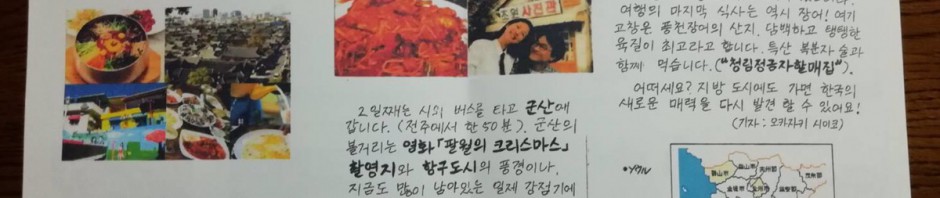 초원 사진관
2일째는 시외 버스를 타고 군산에
갑니다. (전주에서 한 50분). 군산의
볼거리는 영화「팔월의 크리스마스」
촬영지와 항구도시의 풍경이나,
지금도 많이 남아있는 일제 강점기에
여행의 마지막 식사는 역시 장어! 여기
고창은 풍천장어의 산지. 담백하고 탱탱한
육질이 최고라고 합니다. 특산 복분자 술과
함께 먹습니다. ("청림정금자할매집").
어떠세요? 지방 도시에도 가면 한국의
새로운 매력을 다시 발견 할 수 있어요!
(기자 : 오카자키 시이코)